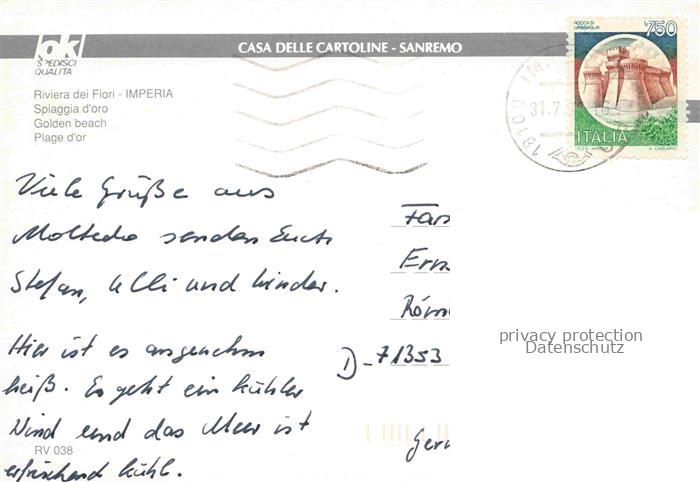 ok
SPEDISCI
QUALITÀ
CASA DELLE CARTOLINE - SANREMO
ROCCA DI
URBISAGLIA
750
ITALIA
Riviera dei Fiori - IMPERIA
Spiaggia d'oro
Golden beach
Plage d'or
18100 IM
31.7.
Viele Grüße aus
Moltedo senden Euch
Stefan, Ulli und Kinder.
Hier ist es angenehm
heiß. Es geht ein kühler
Wind und das Meer ist
erfrischend kühl.
RV 038
Fam
Ern
Röm
D-71353
Ger
privacy protection
Datenschutz